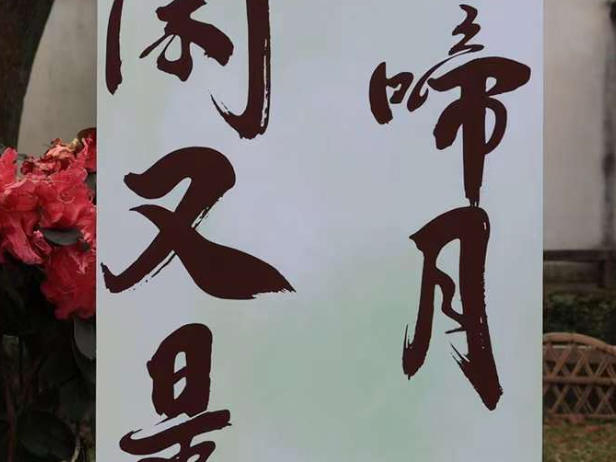 啼月
闲又是